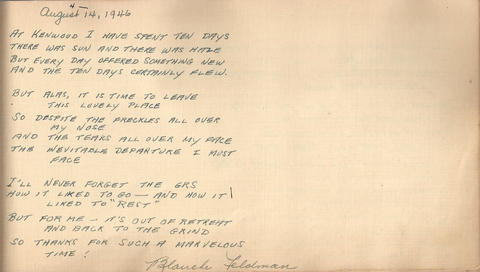 August 14, 1946
AT KENWOOD I HAVE SPENT TEN DAYS
THERE WAS SUN AND THERE WAS HAZE
BUT EVERY DAY OFFERED SOMETHING NEW
AND THE TEN DAYS CERTAINLY FLEW.
BUT ALAS, IT IS TIME TO LEAVE
THIS LOVELY PLACE
SO DESPITE THE FRECKLES ALL OVER
MY NOSE
AND THE TEARS ALL OVER MY FACE
THE INEVITABLE DEPARTURE I MUST
FACE
I'LL NEVER FORGET THE GRS
HOW IT LIKED TO GO — AND HOW IT
LIKED TO "REST"
BUT FOR ME — IT'S OUT OF RETREAT
AND BACK TO THE GRIND
SO THANKS FOR SUCH A MARVELOUS
TIME!
Blanch Feldman